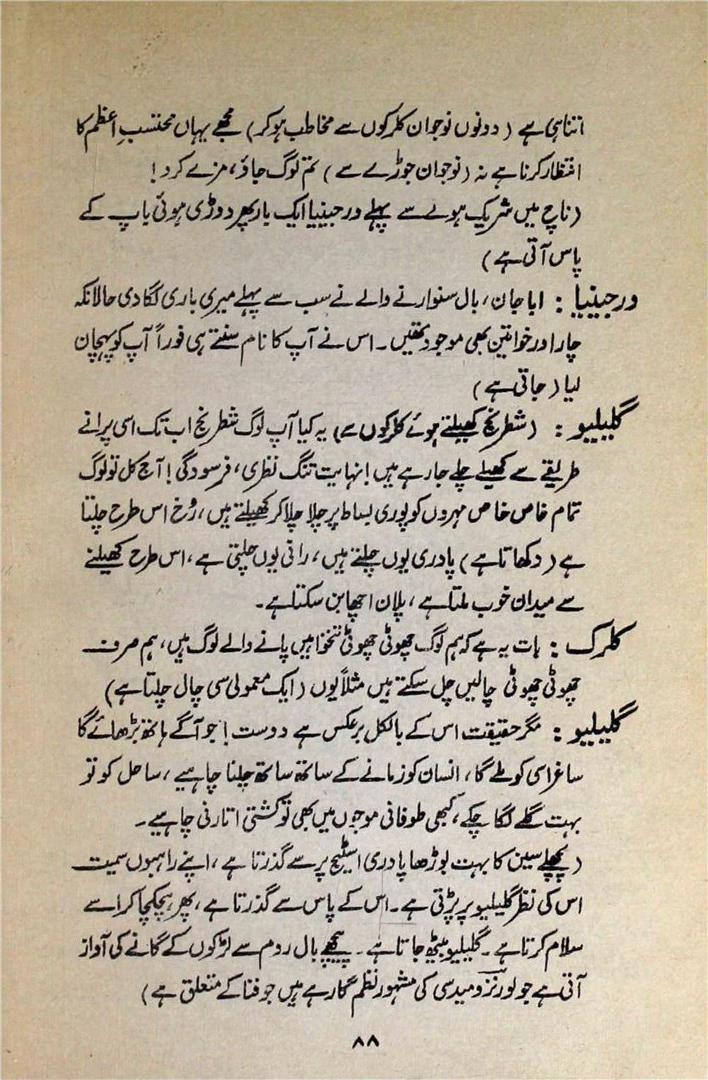 اتنا ہی ہے ( دونوں نوجوان کلرکوں سے مخاطب ہو کر ) مجھے یہاں محتسبِ اعظم کا
انتظار کرنا ہے نہ ( نوجوان جوڑے سے ) تم لوگ جاؤ، مزے کرو !
( ناچ میں شریک ہونے سے پہلے ورجینیا ایک بار پھر دوڑی ہوئی باپ کے
پاس آتی ہے )
ورجینیا : ابا جان، بال سنوارنے والے نے سب سے پہلے میری باری لگا دی حالانکہ
چار اور خواتین بھی موجود تھیں ۔ اس نے آپ کا نام سنتے ہی فوراً آپ کو پہچان
لیا ( جاتی ہے )
گلیلیو : ( شطرنج کھیلتے ہوئے کلرکوں سے ) یہ کیا آپ لوگ شطرنج اب تک اسی پرانے
طریقے سے کھیلے چلے جا رہے ہیں ! نہایت تنگ نظری، فرسودگی ! آج کل تو لوگ
تمام خاص خاص مہروں کو پوری بساط پر چلا چلا کر کھیلتے ہیں ، رُخ اس طرح چلتا
ہے ( دکھاتا ہے ) پادری یوں چلتے ہیں ، رانی یوں چلتی ہے ، اس طرح کھیلنے
سے میدان خوب ملتا ہے ، پلان اچھا بن سکتا ہے ۔
کلرک : بات یہ ہے کہ ہم لوگ چھوٹی چھوٹی تنخواہیں پانے والے لوگ ہیں، ہم صرف
چھوٹی چھوٹی چالیں چل سکتے ہیں مثلاً یوں ( ایک معمولی سی چال چلتا ہے )
گلیلیو : مگر حقیقت اس کے بالکل برعکس ہے دوست ! جو آگے ہاتھ بڑھائے گا
ساغر اسی کو ملے گا ، انسان کو زمانے کے ساتھ ساتھ چلنا چاہیے ، ساحل کو تو
بہت گلے لگا چکے ، کبھی طوفانی موجوں میں بھی تو کشتی اتارنی چاہیے ۔
( پچھلے سین کا بہت بوڑھا پادری اسٹیج پر سے گذرتا ہے ، اپنے راہبوں سمیت
اس کی نظر گلیلیو پر پڑتی ہے ۔ اس کے پاس سے گذرتا ہے ، پھر ہچکچا کر اسے
سلام کرتا ہے ۔ گلیلیو بیٹھ جاتا ہے ۔ پیچھے بال روم سے لڑکوں کے گانے کی آواز
آتی ہے جو لورنزو میدسی کی مشہور نظم گا رہے ہیں جو فنا کے متعلق ہے )
۸۸